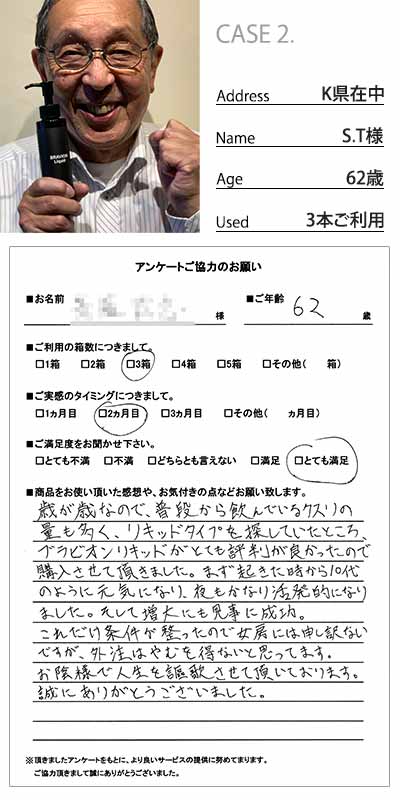 CASE 2.
BRAVION
Liquid
Address K県在中
Name S.T様
Age 62歳
Used 3本ご利用
アンケートご協力のお願い
■お名前 様 ■ご年齢 62 歳
■ご利用の箱数につきまして。
□1箱 □2箱 □3箱 □4箱 □5箱 □その他( 箱)
■ご実感のタイミングにつきまして。
□1ヵ月目 □2ヵ月目 □3ヵ月目 □その他( ヵ月目)
■ご満足度をお聞かせ下さい。
□とても不満 □不満 □どちらとも言えない □満足 □とても満足
■商品をお使い頂いた感想や、お気付きの点などお願い致します。
歳が歳なので、普段から飲んでいるクスリの
量も多く、リキッドタイプを探していたところ、
ブラビオンリキッドがとても評判が良かったので
購入させて頂きました。まず起きた時から10代
のように元気になり、夜もかなり活発的になり
ました。そして増大にも見事に成功。
これだけ条件が整ったので女房には申し訳ない
ですが、外注はやむを得ないと思ってます。
お陰様で人生を謳歌させて頂いております。
誠にありがとうございました。
※頂きましたアンケートをもとに、より良いサービスの提供に努めてまいります。
ご協力頂きまして誠にありがとうございました。